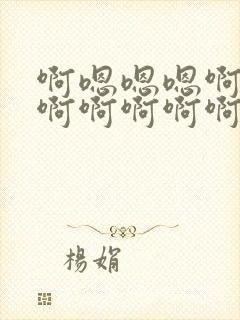 啊嗯嗯嗯啊
啊啊啊啊啊
楊娟